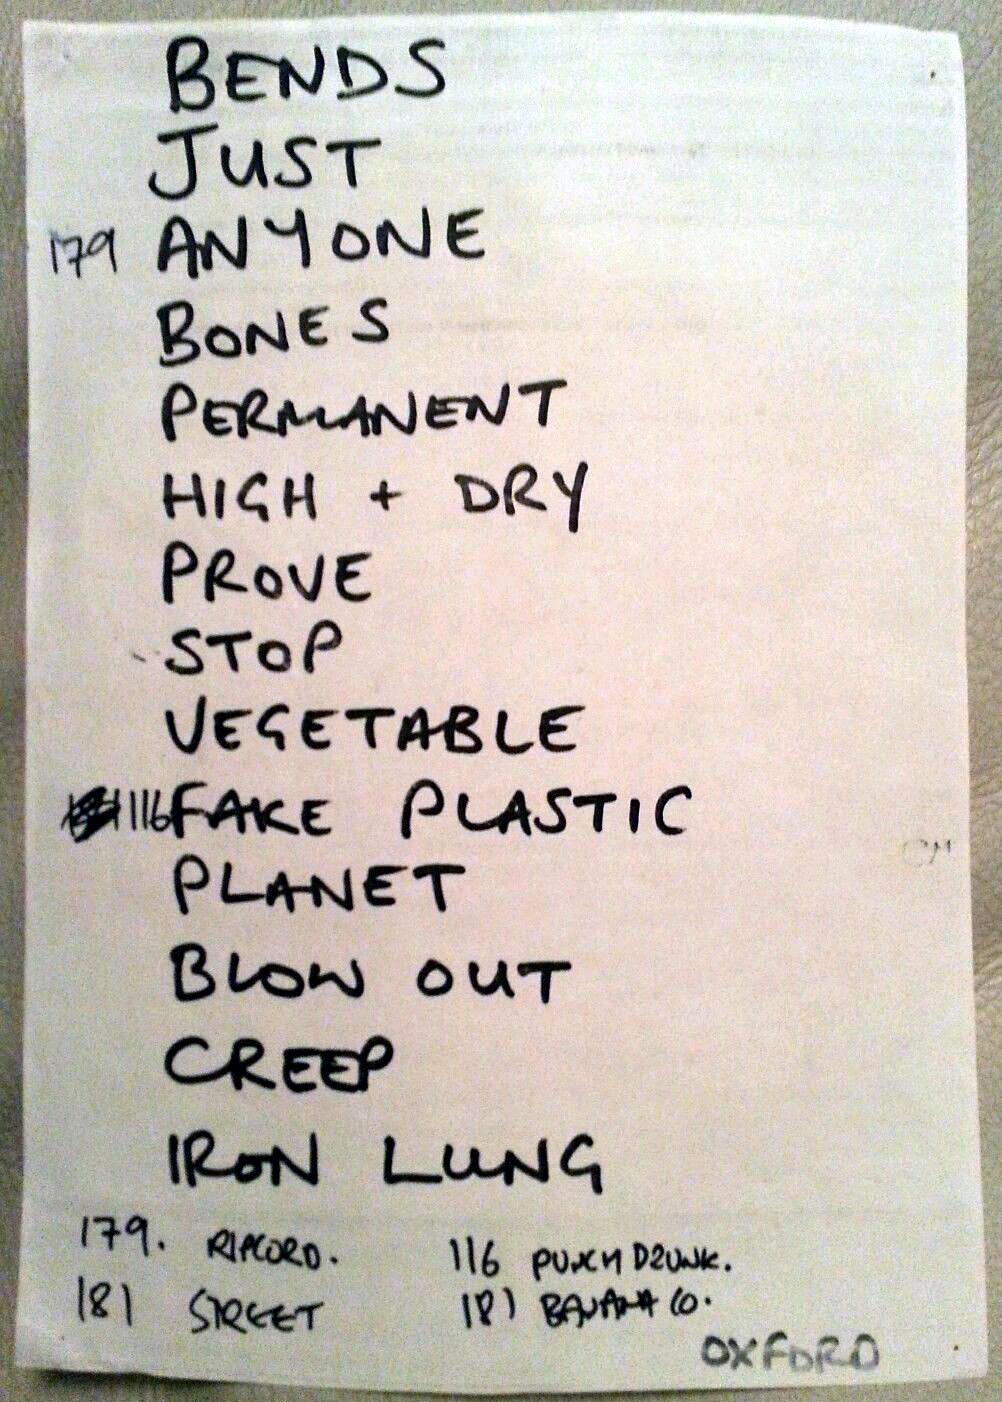 BENDS
JUST
179 ANYONE
BONES
PERMANENT
HIGH + DRY
PROVE
STOP
VEGETABLE
116 FAKE PLASTIC
PLANET
BLOW OUT
CREEP
IRON LUNG
179. RIPCORD. 116 PUNCH DRUNK.
181 STREET 181 BANANA CO.
OXFORD